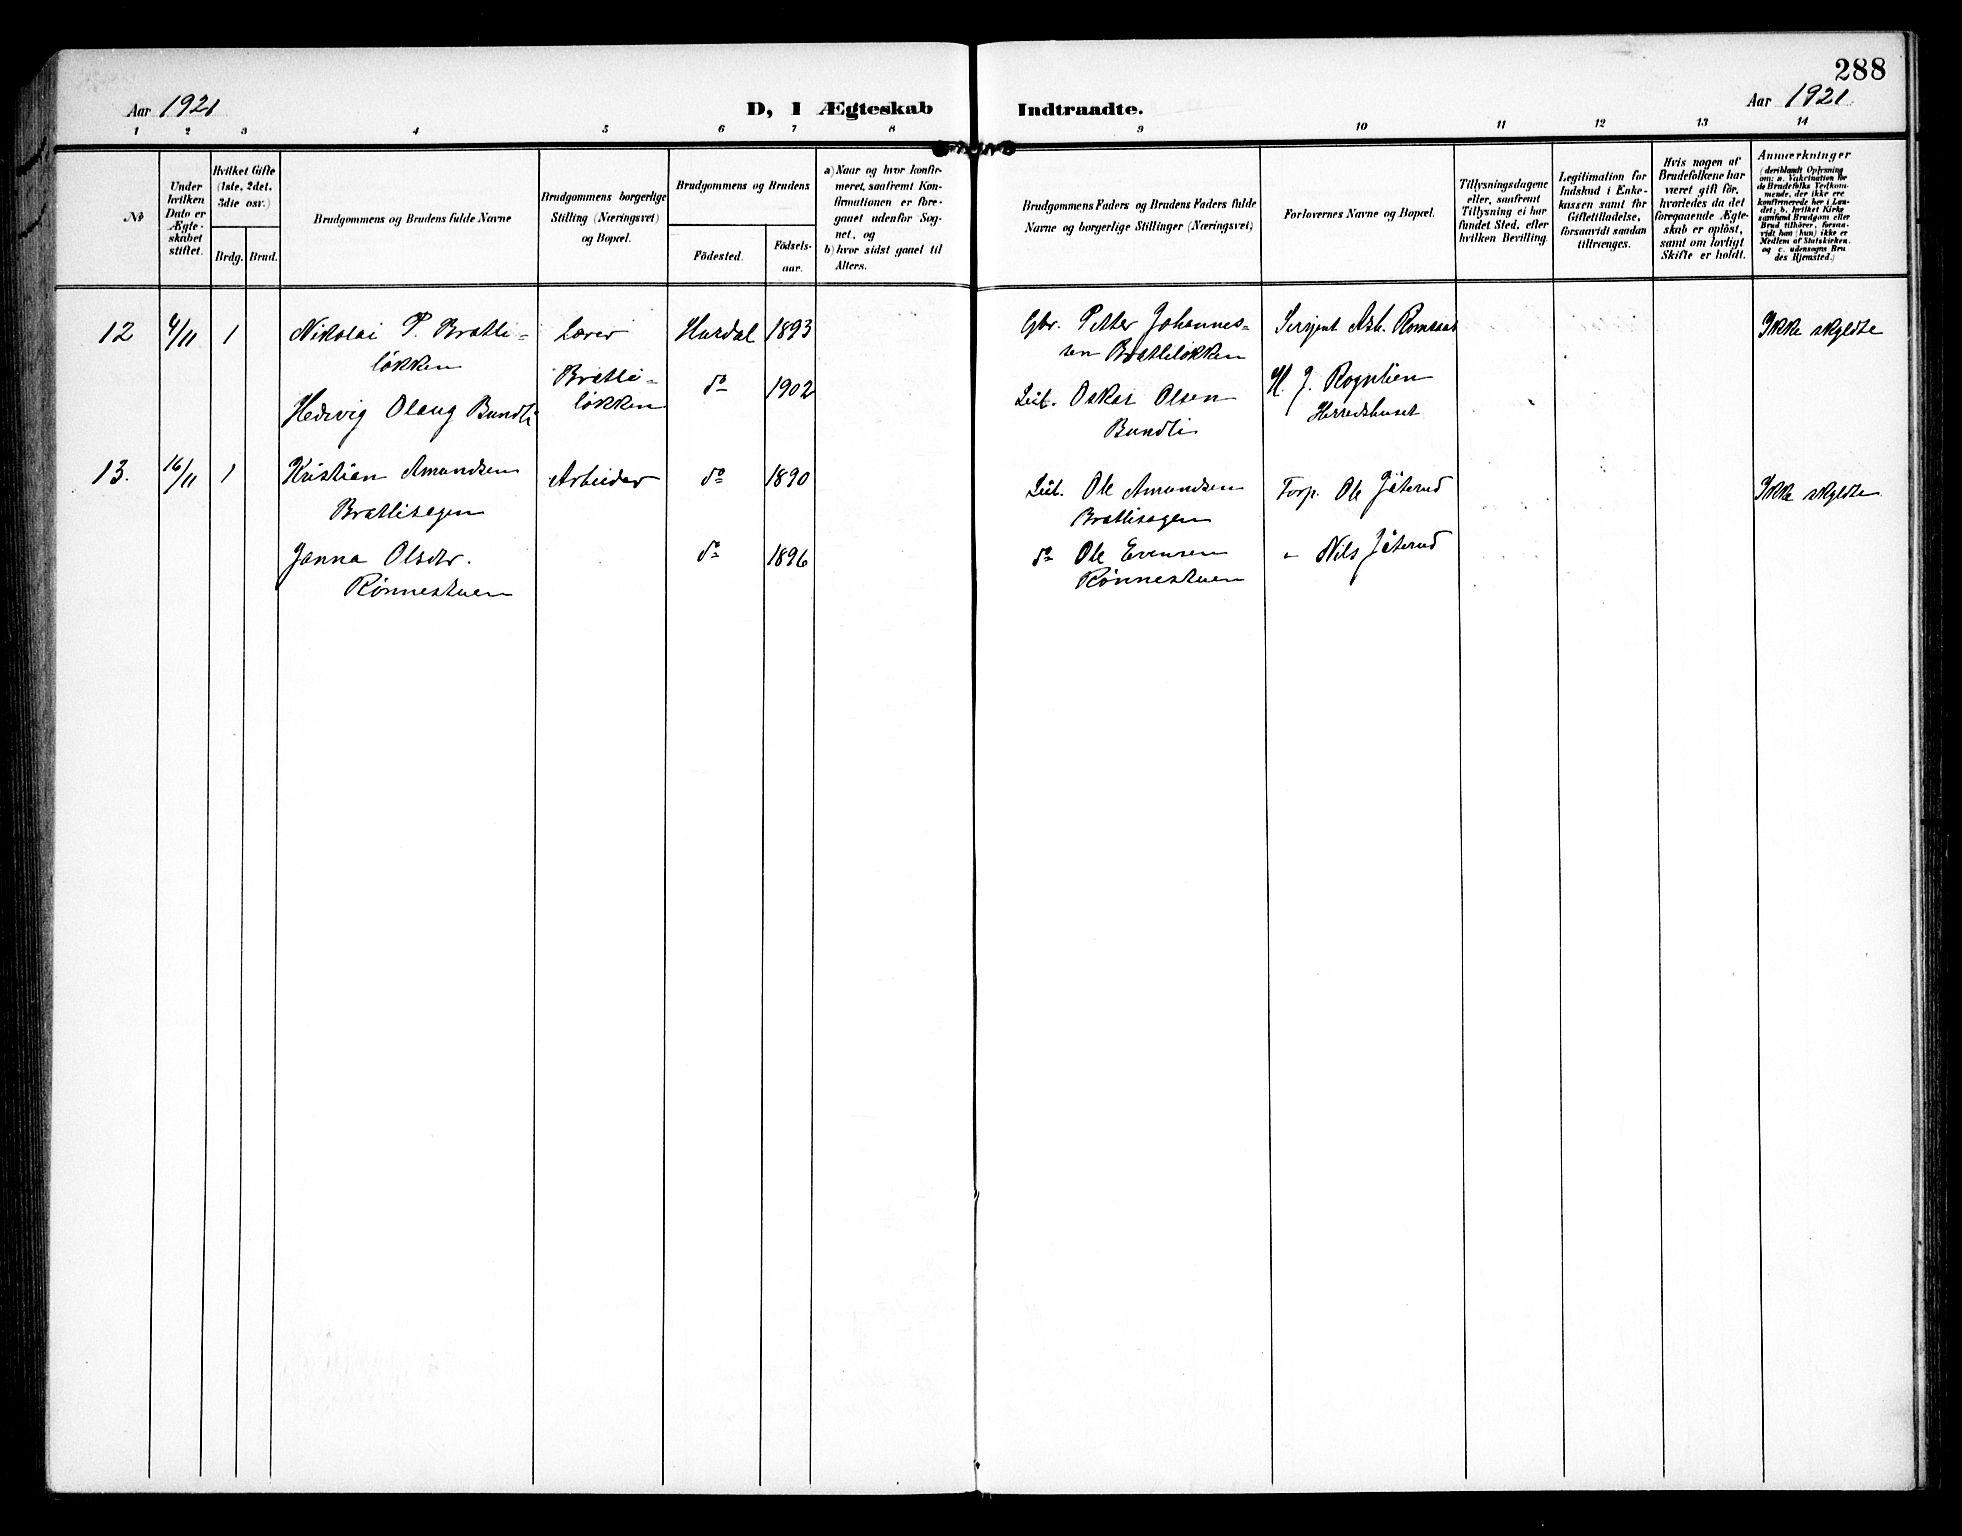 288
Aar 1921
D, I Ægteskab Indtraadte.
Aar 1921
1 2 3 4 5 6 7 8 9 10 11 12 13 14
No
Under hvilken Dato er Ægteskabet stiftet.
Hvilket Gifte (1ste, 2det, 3die osv.)
Brdg. Brud.
Brudgommens og Brudens fulde Navne
Brudgommens borgerlige Stilling (Næringsvei) og Bopæl.
Brudgommens og Brudens
Födested.
Födselsaar.
a) Naar og hvor konfirmeret, saafremt Konfirmationen er foregaaet udenfor Sognet, og
b) hvor sidst gaaet til Alters.
Brudgommens Faders og Brudens Faders fulde Navne og borgerlige Stillinger (Næringsvei)
Forlovernes Navne og Bopæl.
Tillysningsdagene eller, saafremt Tillysning ei har fundet Sted, efter hvilken Bevilling.
Legitimation for Indskud i Enkekassen samt for Giftetilladelse, forsaavidt saadan tiltrænges.
Hvis nogen af Brudefolkene har været gift för, hvorledes da det foregaaende Ægteskab er oplöst, samt om lovligt Skifte er holdt.
Anmærkninger
(deriblandt Oplysning om: a. Vakcination for de Brudefolks Vedkommende, der ikke ere konfirmerede her i Landet; b. hvilket Kirkesamfund Brudgom eller Brud tilhörer, forsaavidt han (hun) ikke er Medlem af Statskirken, og c. udensogns Brudes Hjemsted.)
12 4/11 1 Nikolai P. Bratli- Lærer Hurdal 1893 Gbr. Petter Johannes- Serjent Ash. Romsaas Ikke skyldte
løkken Bratli- sen Bratliløkken
Hedvig Olaug Bundli løkken do 1902 Leil. Oskar Olsen H. J. Rognlien
Bundli Herredshuset
13. 16/11 1 Kristian Amundsen Arbeider do 1890 Leil. Ole Amundsen Forp. Ole Jåterud Ikke skyldte
Bratlisagen Bratlisagen
Janna Olsdtr. do 1896 do Ole Evensen " Nils Jåterud
Rønnestuen Rønnestuen